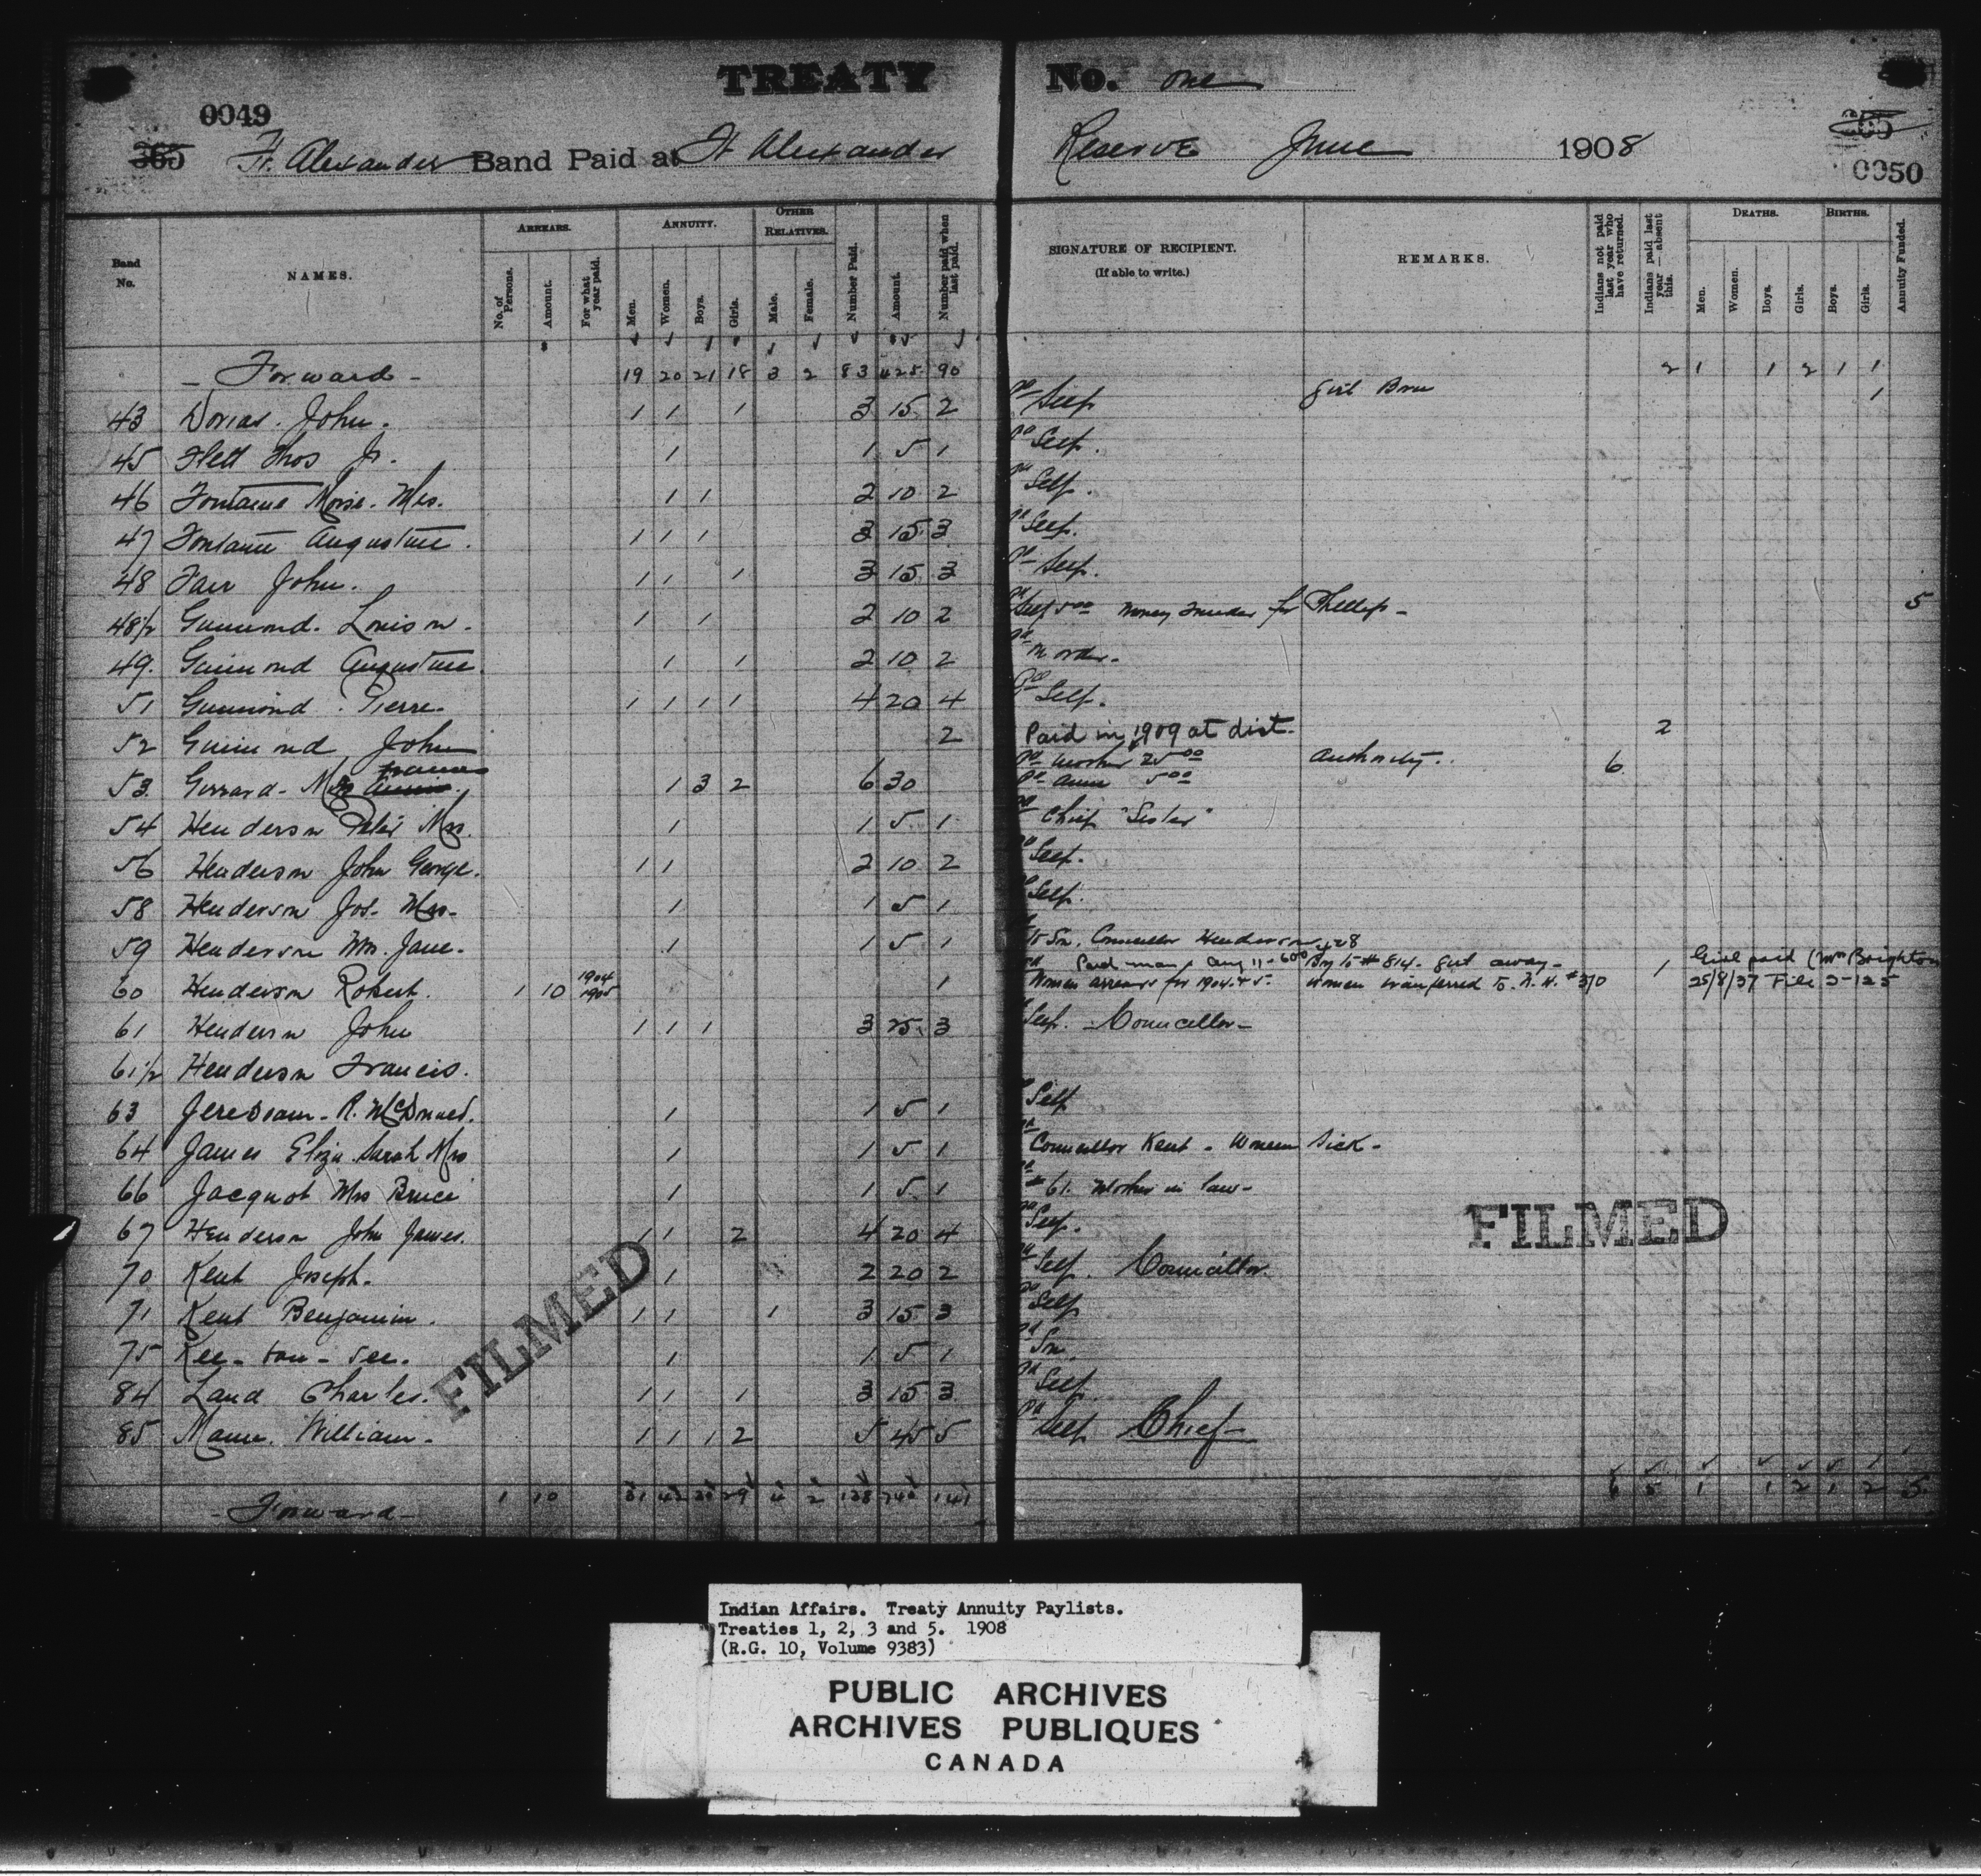 TREATY No. one
0049
365 Ft. Alexander Band Paid at Ft Alexander Reserve June 1908 265
0050
Band No. NAMES. ARREARS. No. of Persons. Amount. For what year paid. ANNUITY. Men. Women. Boys. Girls. OTHER RELATIVES. Male. Female. Number Paid. Amount. Number paid when last paid. SIGNATURE OF RECIPIENT. (If able to write.) REMARKS. Indians not paid last year who have returned. Indians paid last year — absent this. DEATHS. Men. Women. Boys. Girls. BIRTHS. Boys. Girls. Annuity Funded.
- Forward - 19 20 21 18 3 2 83 425 90 2 1 1 2 1 1
43 John. 1 1 1 3 15 2 Pd Self Girl Born 1
45 Flett Thos Jr. 1 1 5 1 Pd Self.
46 Fontaine Moise. Mrs. 1 1 2 10 2 Pd Self.
47 Fontaine Augustine. 1 1 1 3 15 3 Pd Self.
48 John. 1 1 1 3 15 3 Pd Self.
48½ Guimond. Louison. 1 1 2 10 2 Pd Self 5.00 Money for Phillip - 5
49. Guimond Augustine. 1 1 2 10 2 Pd
51 Guimond. Pierre. 1 1 1 1 4 20 4 Pd Self.
52 Guimond John 2 Paid in 1909 at dist. 2
53. Gerrard - Mrs 1 3 2 6 30 Pd Mother 25.00 Authority. 6
Pd Annie 5.00
54 Henderson Peter Mrs. 1 1 5 1 Pd Chief "Sister"
56 Henderson John George. 1 1 2 10 2 Pd Self.
58 Henderson Jos. Mrs - 1 1 5 1 Pd Self.
59 Henderson Wm. Jane. 1 1 5 1 to Son, Councillor Henderson
60 Henderson Robert. 1 10 1904 1905 1 Paid man Aug 11 - Boy to # 814. girl away - 1 Girl paid (Mrs Brighton
Women arrears for 1904 & 5. Women transferred to 25/8/37 File
61 Henderson John 1 1 1 3 25 3 Self. - Councillor -
61½ Henderson Francis.
63 R. McDonald. 1 1 5 1 Pd Self
64 James Eliza Sarah Mrs 1 1 5 1 Pd Councillor Kent - Women Sick -
66 Jacquot Mrs Bruce 1 1 5 1 Pd # 61. Mother in law -
67 Henderson John James. 1 1 2 4 20 4 Pd Self.
70 Kent Joseph. 1 2 20 2 Pd Self. Councillor.
71 Kent Benjamin. 1 1 1 3 15 3 Pd Self
75 Kee - tou - see. 1 1 5 1 Pd Son.
84 Land Charles. 1 1 1 3 15 3 Pd Self
85 Mann. William - 1 1 1 2 5 45 5 Pd Self Chief -
- Forward - 1 10 31 42 30 29 4 2 138 740 141 6 5 1 1 2 1 2 5
FILMED
FILMED
Indian Affairs. Treaty Annuity Paylists.
Treaties 1, 2, 3 and 5. 1908
(R.G. 10, Volume 9383)
PUBLIC ARCHIVES
ARCHIVES PUBLIQUES
CANADA